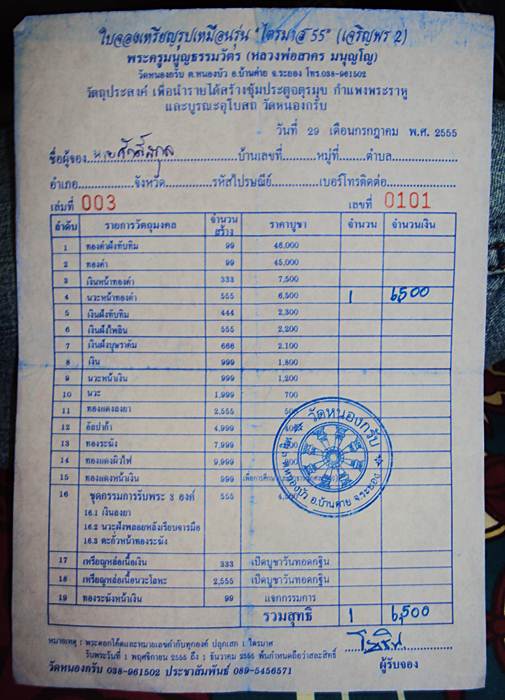 ใบจองเหรียญรูปเหมือนรุ่น "ไตรมาส 55" (เจริญพร 2)
พระครูมนูญธรรมวัตร (หลวงพ่อสาคร มนุญโญ)
วัดหนองกรับ ต.หนองบัว อ.บ้านค่าย จ.ระยอง โทร.038-961502
วัตถุประสงค์ เพื่อนำรายได้สร้างซุ้มประตูจตุรมุข กำแพงพระราหู
และบูรณะอุโบสถ วัดหนองกรับ
วันที่ 29 เดือนกรกฎาคม พ.ศ. 2555
ชื่อผู้จอง บ้านเลขที่ หมู่ที่ ตำบล
อำเภอ จังหวัด รหัสไปรษณีย์ เบอร์โทรติดต่อ
เล่มที่ 003 เลขที่ 0101
ลำดับ รายการวัตถุมงคล จำนวนสร้าง ราคาบูชา จำนวน จำนวนเงิน
1 ทองคำฝังทับทิม 99 46,000
2 ทองคำ 99 45,000
3 เงินหน้าทองคำ 333 7,500
4 นวะหน้าทองคำ 555 6,500 1 6,500
5 เงินฝังทับทิม 444 2,300
6 เงินฝังไพลิน 555 2,200
7 เงินฝังบุษราคัม 666 2,100
8 เงิน 999 1,800
9 นวะหน้าเงิน 999 1,200
10 นวะ 1,999 700
11 ทองแดงลงยา 2,555
12 อัลปาก้า 4,999
13 ทองระฆัง 7,999
14 ทองแดงผิวไฟ 9,999
15 ทองแดงหน้าเงิน 999
16 ชุดกรรมการรับพระ 3 องค์ 555
16.1 เงินลงยา
16.2 นวะฝังพลอยหลังเรียบจารมือ
16.3 ตะกั่วหน้าทองระฆัง
17 เหรียญหล่อเนื้อเงิน 333 เปิดบูชาวันทอดกฐิน
18 เหรียญหล่อเนื้อนวะโลหะ 2,555 เปิดบูชาวันทอดกฐิน
19 ทองระฆังหน้าเงิน 99 แจกกรรมการ
รวมสุทธิ 1 6,500
วัดหนองกรับ
ต.หนองบัว อ.บ้านค่าย จ.ระยอง
หมายเหตุ : พระตอกโค้ดและหมายเลขกำกับทุกองค์ ปลุกเสก 1 ไตรมาส
รับพระวันที่ 1 พฤศจิกายน 2555 ถึง 1 ธันวาคม 2555 พ้นกำหนดถือว่าสละสิทธิ์
วัดหนองกรับ 038-961502 ประชาสัมพันธ์ 089-5456571 ผู้รับจอง